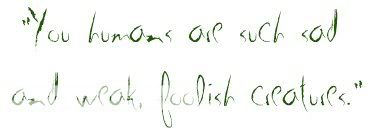 "You humans are such sad
and weak, foolish creatures."